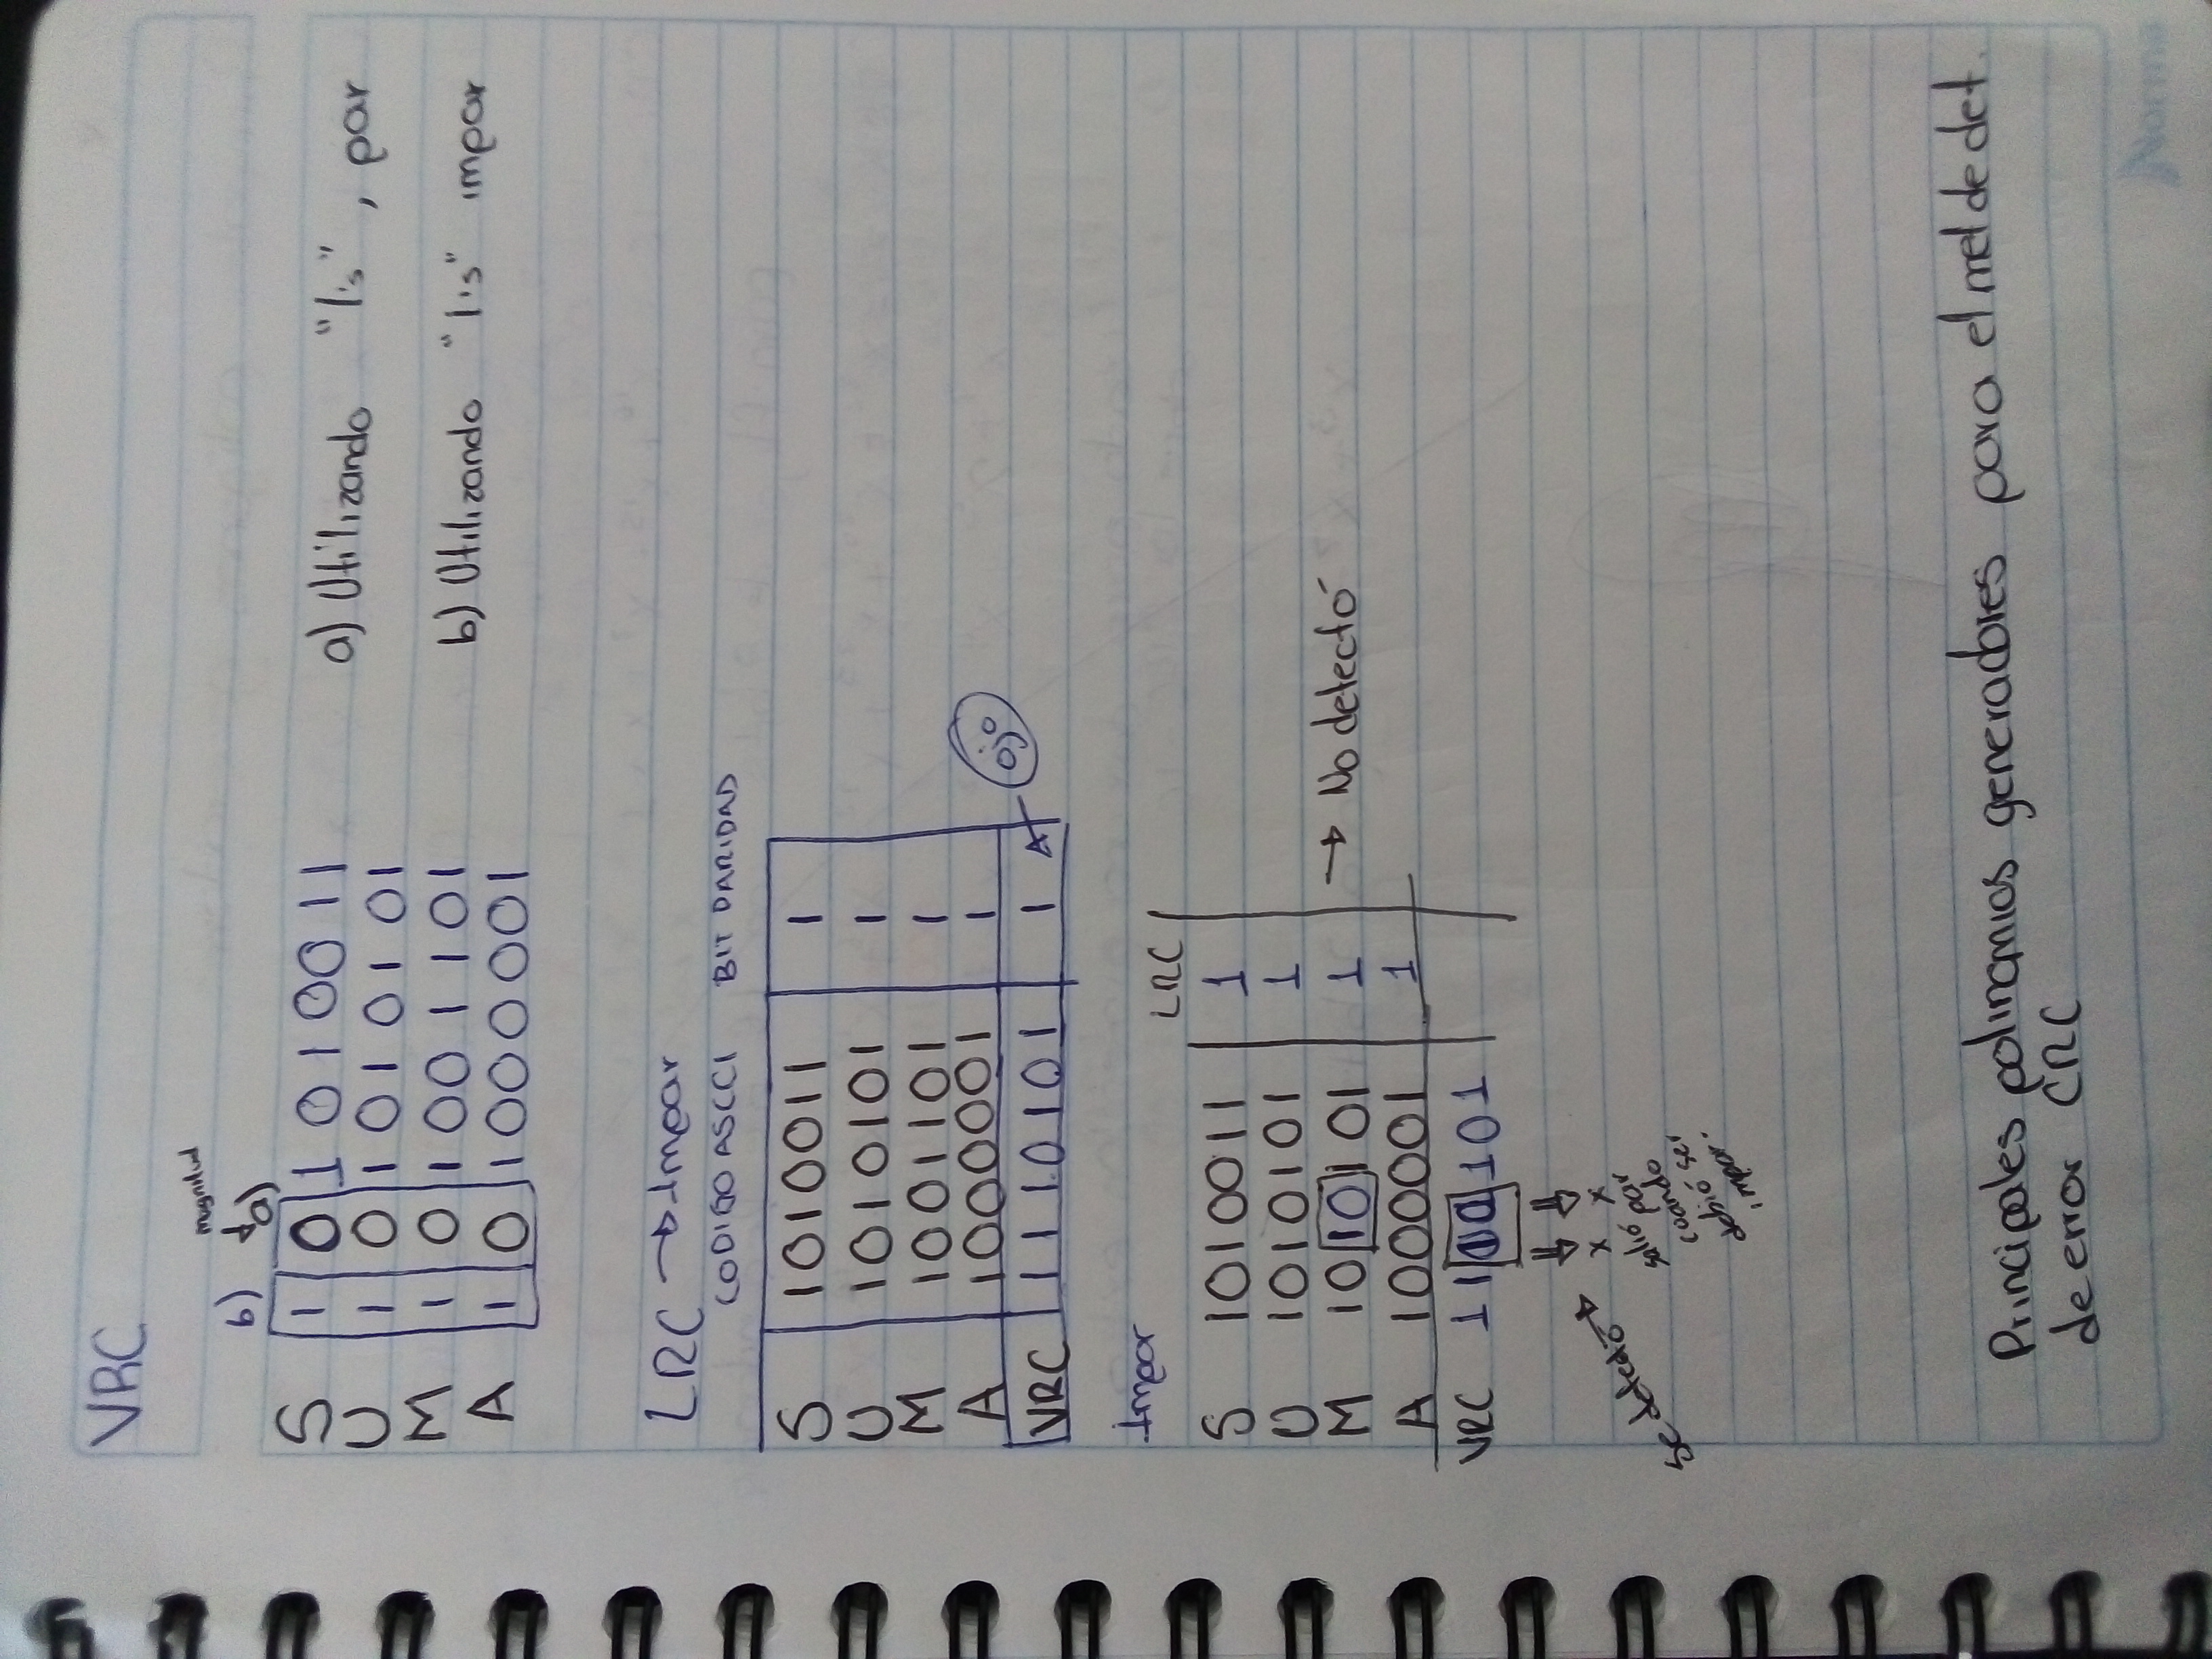 VRC
magnitud
b) a)
S 1 0 1010011 a) Utilizando "1's", par
U 1 0 1010101
M 1 0 1001101 b) Utilizando "1's" impar
A 1 0 1000001
LRC → Impar
CODIGO ASCCI BIT PARIDAD
S 1010011 1
U 1010101 1
M 1001101 1
A 1000001 1
ojo
VRC 1110101 1
Impar
LRC
S 1010011 1
U 1010101 1
M 1010101 1 → No detectó
A 1000001 1
VRC 1100101
x x
Se detectó → salió par
cuando
debió ser
impar.
Principales polinomios generadores para el met de det.
de error CRC
Norma